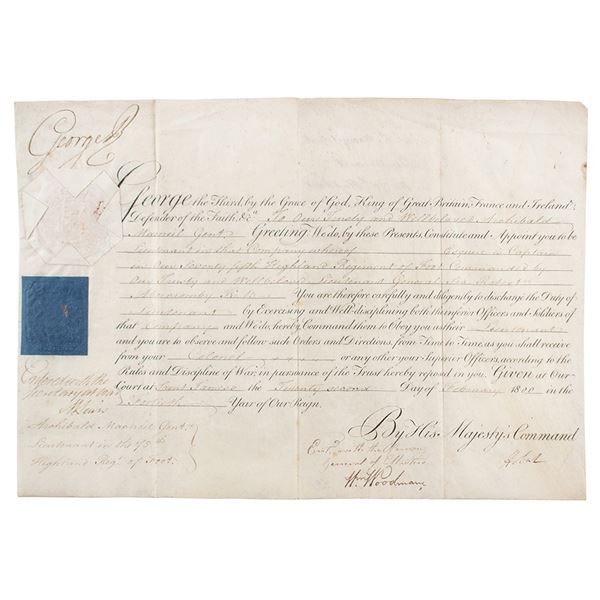 George R
George the Third, by the Grace of God, King of Great-Britain, France and Ireland,
Defender of the Faith, &c. To Our Trusty and Wellbeloved Archibald
Macneil Gent. Greeting. We do, by these Presents, Constitute and Appoint you to be
Lieutenant in that Company whereof Esquire is Captain
in Our Seventy fifth Highland Regiment of Foot Commanded by
Our Trusty and Wellbeloved Lieutenant General Sir Robert
Abercromby K:B: You are therefore carefully and diligently to discharge the Duty of
Lieutenant by Exercising and Well-disciplining both the inferior Officers and Soldiers of
that Company and We do hereby Command them to Obey you as their Lieutenant
and you are to observe and follow such Orders and Directions, from Time to Time, as you shall receive
from your Colonel or any other your Superior Officers, according to the
Rules and Discipline of War, in pursuance of the Trust hereby reposed in you. Given at Our
Court at Saint James's the Twenty second Day of February 1800 in the
Fortieth Year of Our Reign.
By His Majesty's Command
Entered with the
Secretary at War
M Lewis
Archibald Macneil Gent.
Lieutenant in the 75th
Highland Reg. of Foot.
Entd. with the
General of Musters
Wm. Woodman